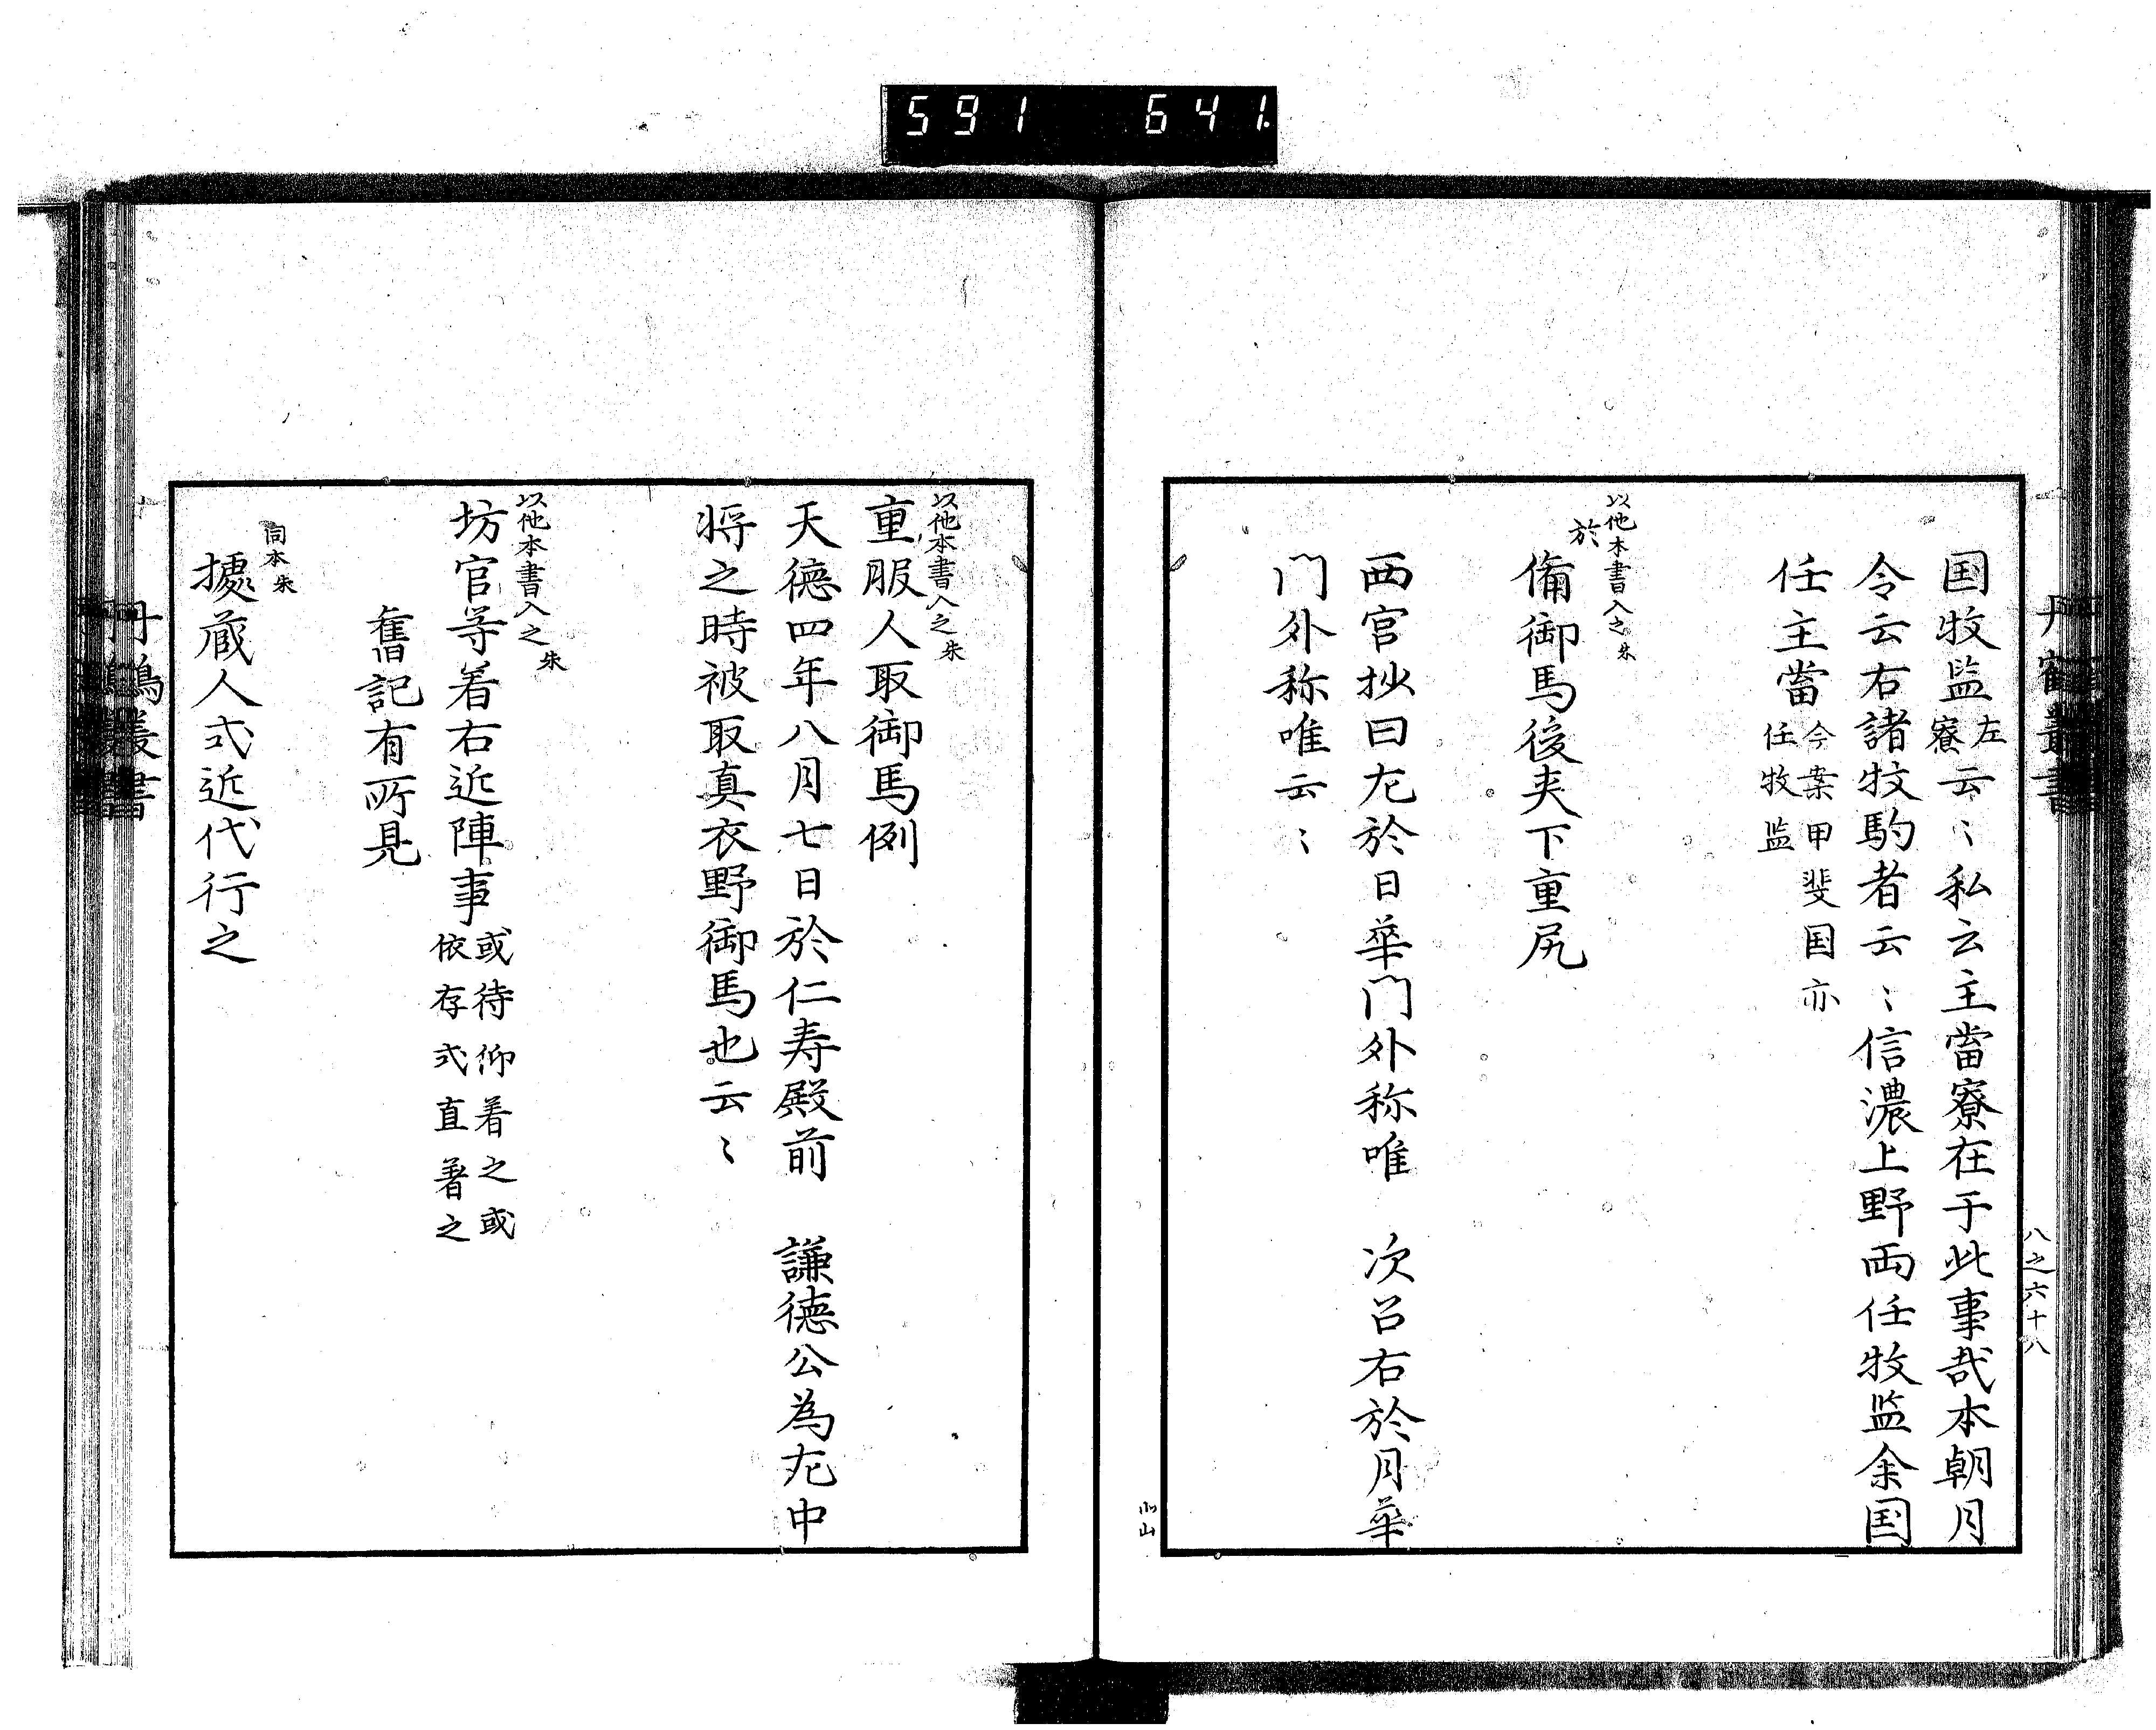 591 641.
丹鶴叢書
八之六十八
国牧监左寮云〻私云主當寮在于此事哉本朝月
令云右諸牧駒者云〻信濃上野両任牧监余国
任主當今案甲斐国亦任牧监
以他本書入之朱
於
備御馬後夾下重尻
西官抄曰尢於日華门外称唯 次召右於月華
门外称唯云〻
以他本書入之朱
重服人取御馬例
天徳四年八月七日於仁寿殿前 謙徳公為尢中
将之時被取真衣野御馬也云〻
以他本書入之朱
坊官等着右近陣事或待仰着之或依存式直着之
舊記有所見
同本朱
據蔵人式近代行之
丹鶴叢書